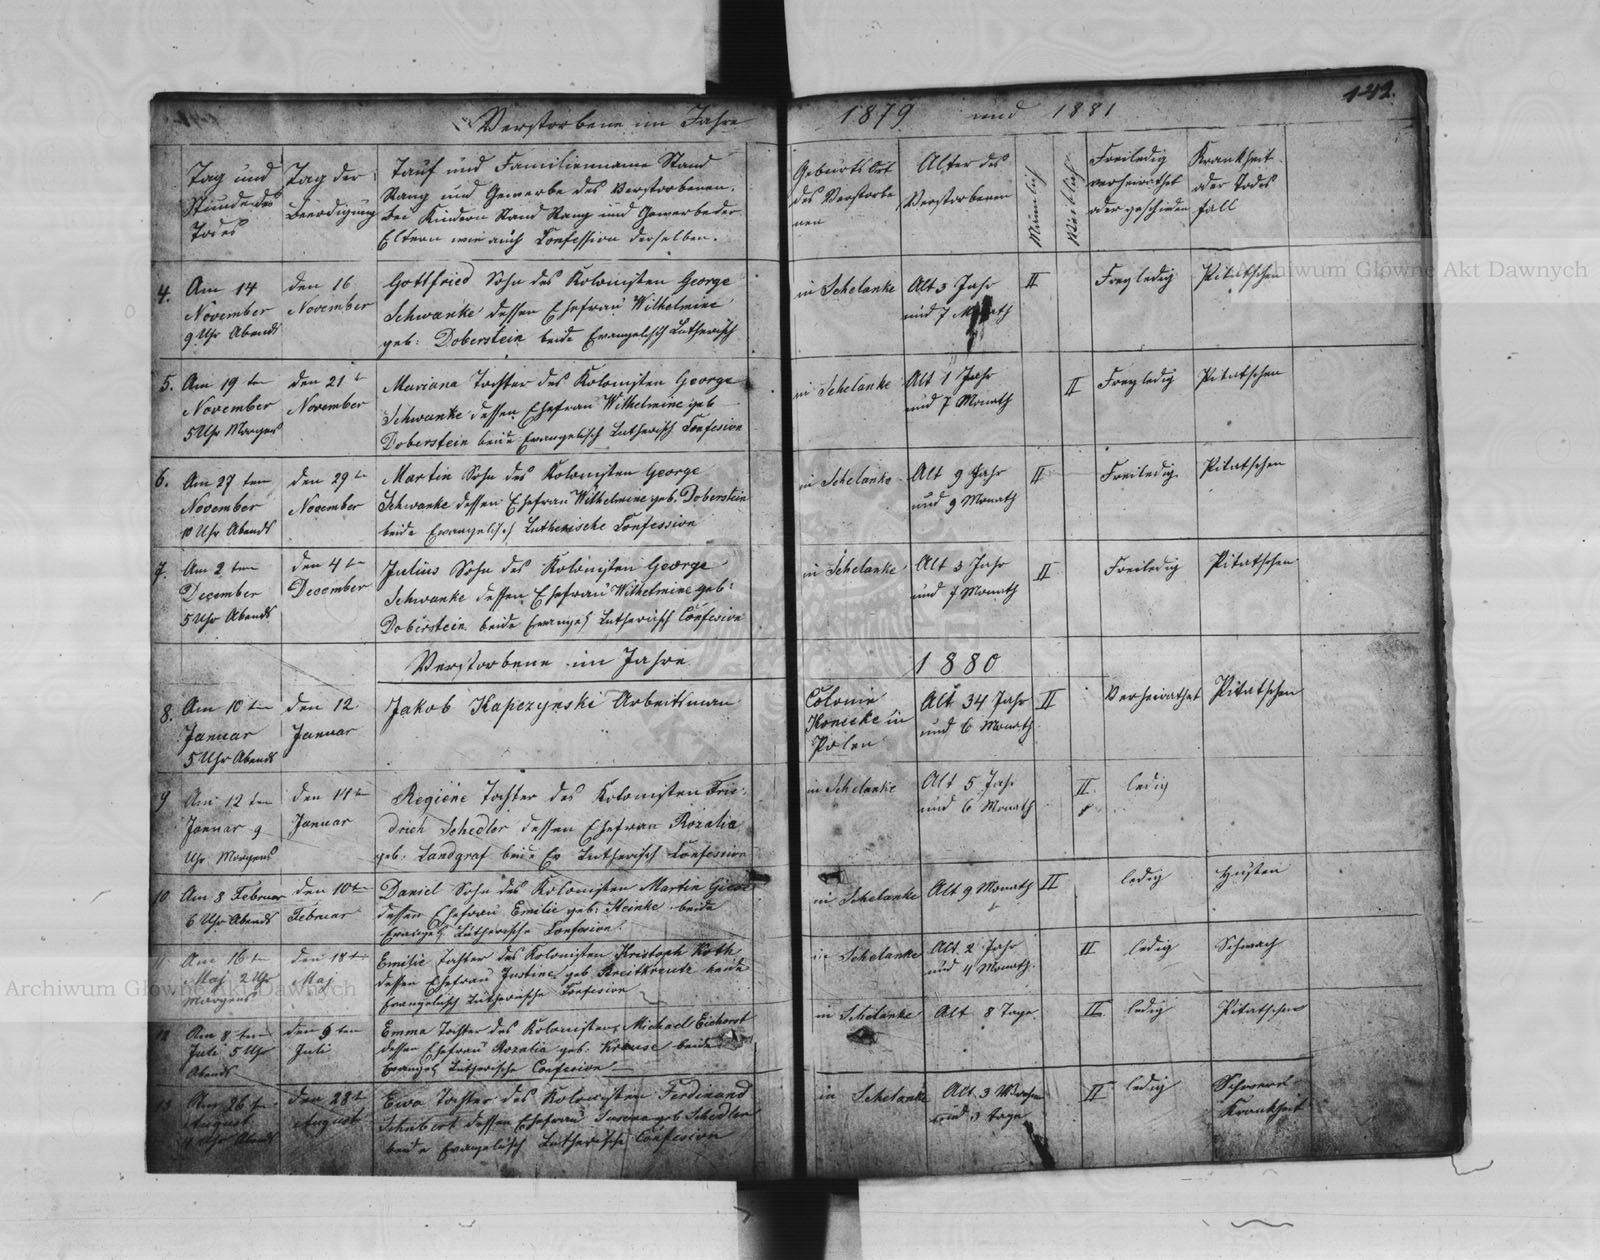 142.
Verstorbene im Jahre 1879 und 1881
Tag und
Stunde des
Todes
Tag der
Beerdigung
Tauf und Familienname Stand
Rang und Gewerbe des Verstorbenen.
bei Kindern Stand Rang und Gewerbe der
Eltern wie auch Confession derselben.
Geburts Ort
des Verstorbe
nen
Alter des
Verstorbenen
Männlich
Weiblich
Freiledig
verheirathet
oder geschieden
Krankheit
oder Todes
fall
4.
Am 14
November
9 Uhr Abends
den 16
November
Gottfried Sohn des Kolonisten George
Schwanke dessen Ehefrau Wilhelmine
geb: Doberstein beide Evangelisch Lutherisch
in Schelanke
Alt 3 Jahr
und 7 Monath
II
Frey ledig
Pitatschen
Archiwum Główne Akt Dawnych
5.
Am 19 ten
November
5 Uhr Morgens
den 21 t
November
Mariana Tochter des Kolonisten George
Schwanke dessen Ehefrau Wilhelmine geb
Doberstein beide Evangelisch Lutherisch Confesion
in Schelanke
Alt 1 Jahr
und 7 Monath
II
Frey ledig
Pitatschen
6.
Am 27 ten
November
10 Uhr Abends
den 29 t
November
Martin Sohn des Kolonisten George
Schwanke dessen Ehefrau Wilhelmine geb. Doberstein
beide Lutherische Confession
in Schelanke
Alt 9 Jahr
und 9 Monath
II
Freiledig
Pitatschen
7.
Am 2 ten
December
5 Uhr Abends
den 4 t
December
Julius Sohn des Kolonisten George
Schwanke dessen Ehefrau Wilhelmine geb:
Doberstein beide Lutherisch Confesion
in Schelanke
Alt 3 Jahr
und 7 Monath
II
Freiledig
Pitatschen
Verstorbene im Jahre 1880
8.
Am 10 ten
Januar
5 Uhr Abends
den 12
Januar
Jakob Kapczynski Arbeitsman
Colonie
in
Polen
Alt 34 Jahr
und 6 Monath
II
Verheirathet
Pitatschen
9
Am 12 ten
Januar 9
Uhr Morgens
den 14 t
Januar
Regiene Tochter des Kolonisten Frie-
drich Schedler dessen Ehefrau Rozalia
geb. Landgraf beide Ev Lutherisch Confession
in Schelanke
Alt 5 Jahr
und 6 Monath
II
ledig
10
Am 8 Februar
6 Uhr Abends
den 10 ten
Februar
Daniel Sohn des Kolonisten Martin
dessen Ehefrau Emilie geb: Heinke beide
Evangel Lutherische Confesion.
in Schelanke
Alt 9 Monath
II
ledig
Husten
11
Am 16 ten
Maj 2 Uhr
Morgens
den 18 t
Maj
Emilie Tochter des Kolonisten Kristoph Roth
dessen Ehefrau Justine geb Breitkreutz beide
Evangelisch Lutherische Confesion
in Schelanke
Alt 2 Jahr
und 4 Monath.
II
ledig
Schwach
Archiwum Główne Akt Dawnych
12
Am 8 ten
Juli 5 Uhr
Abends
den 9 ten
Juli
Emma Tochter des Kolonisten Michael Eichorst
dessen Ehefrau Rozalia geb: Krause beide
Evangel Lutherische Confesion
in Schelanke
Alt 8 Tage.
II
ledig
Pitatschen
13
Am 26 ten
August
Uhr Abends
den 28 t
August
Ewa Tochter des Kolonisten Ferdinand
Schubert dessen Ehefrau geb Schedler
beide Evangelisch Lutherische Confesion
in Schelanke
Alt 3 Wochen
und 3 Tage
II
ledig
Schwere
Krankheit